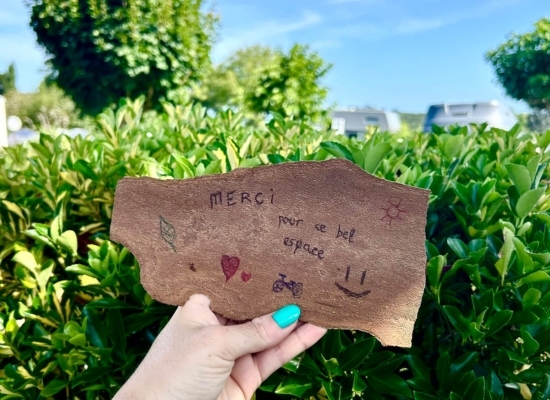 MERCi
pour ce bel
espace